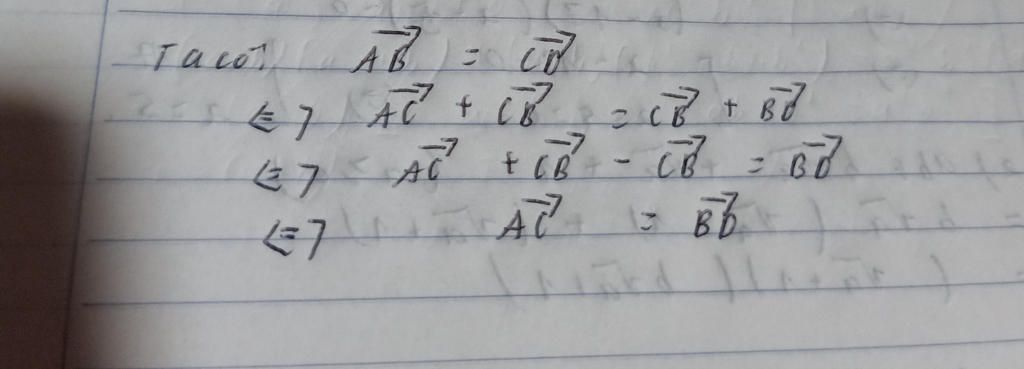 Ta có: $\overrightarrow{AB} = \overrightarrow{CD}$
<=> $\overrightarrow{AC} + \overrightarrow{CB} = \overrightarrow{CB} + \overrightarrow{BD}$
<=> $\overrightarrow{AC} + \overrightarrow{CB} - \overrightarrow{CB} = \overrightarrow{BD}$
<=> $\overrightarrow{AC} = \overrightarrow{BD}$